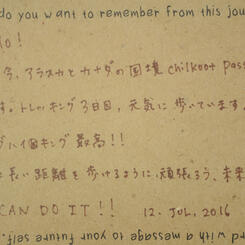 do you want to remember from this jou
lo!
今、アラスカとカナダの国境 Chilkoot Pass
す。トレッキング3日目、元気に歩いています。
グ ハイキング最高!!
に長い距離を歩けるように、頑張ろう、未来
CAN DO IT!! 12. JUL, 2016
rd with a message to your future self.